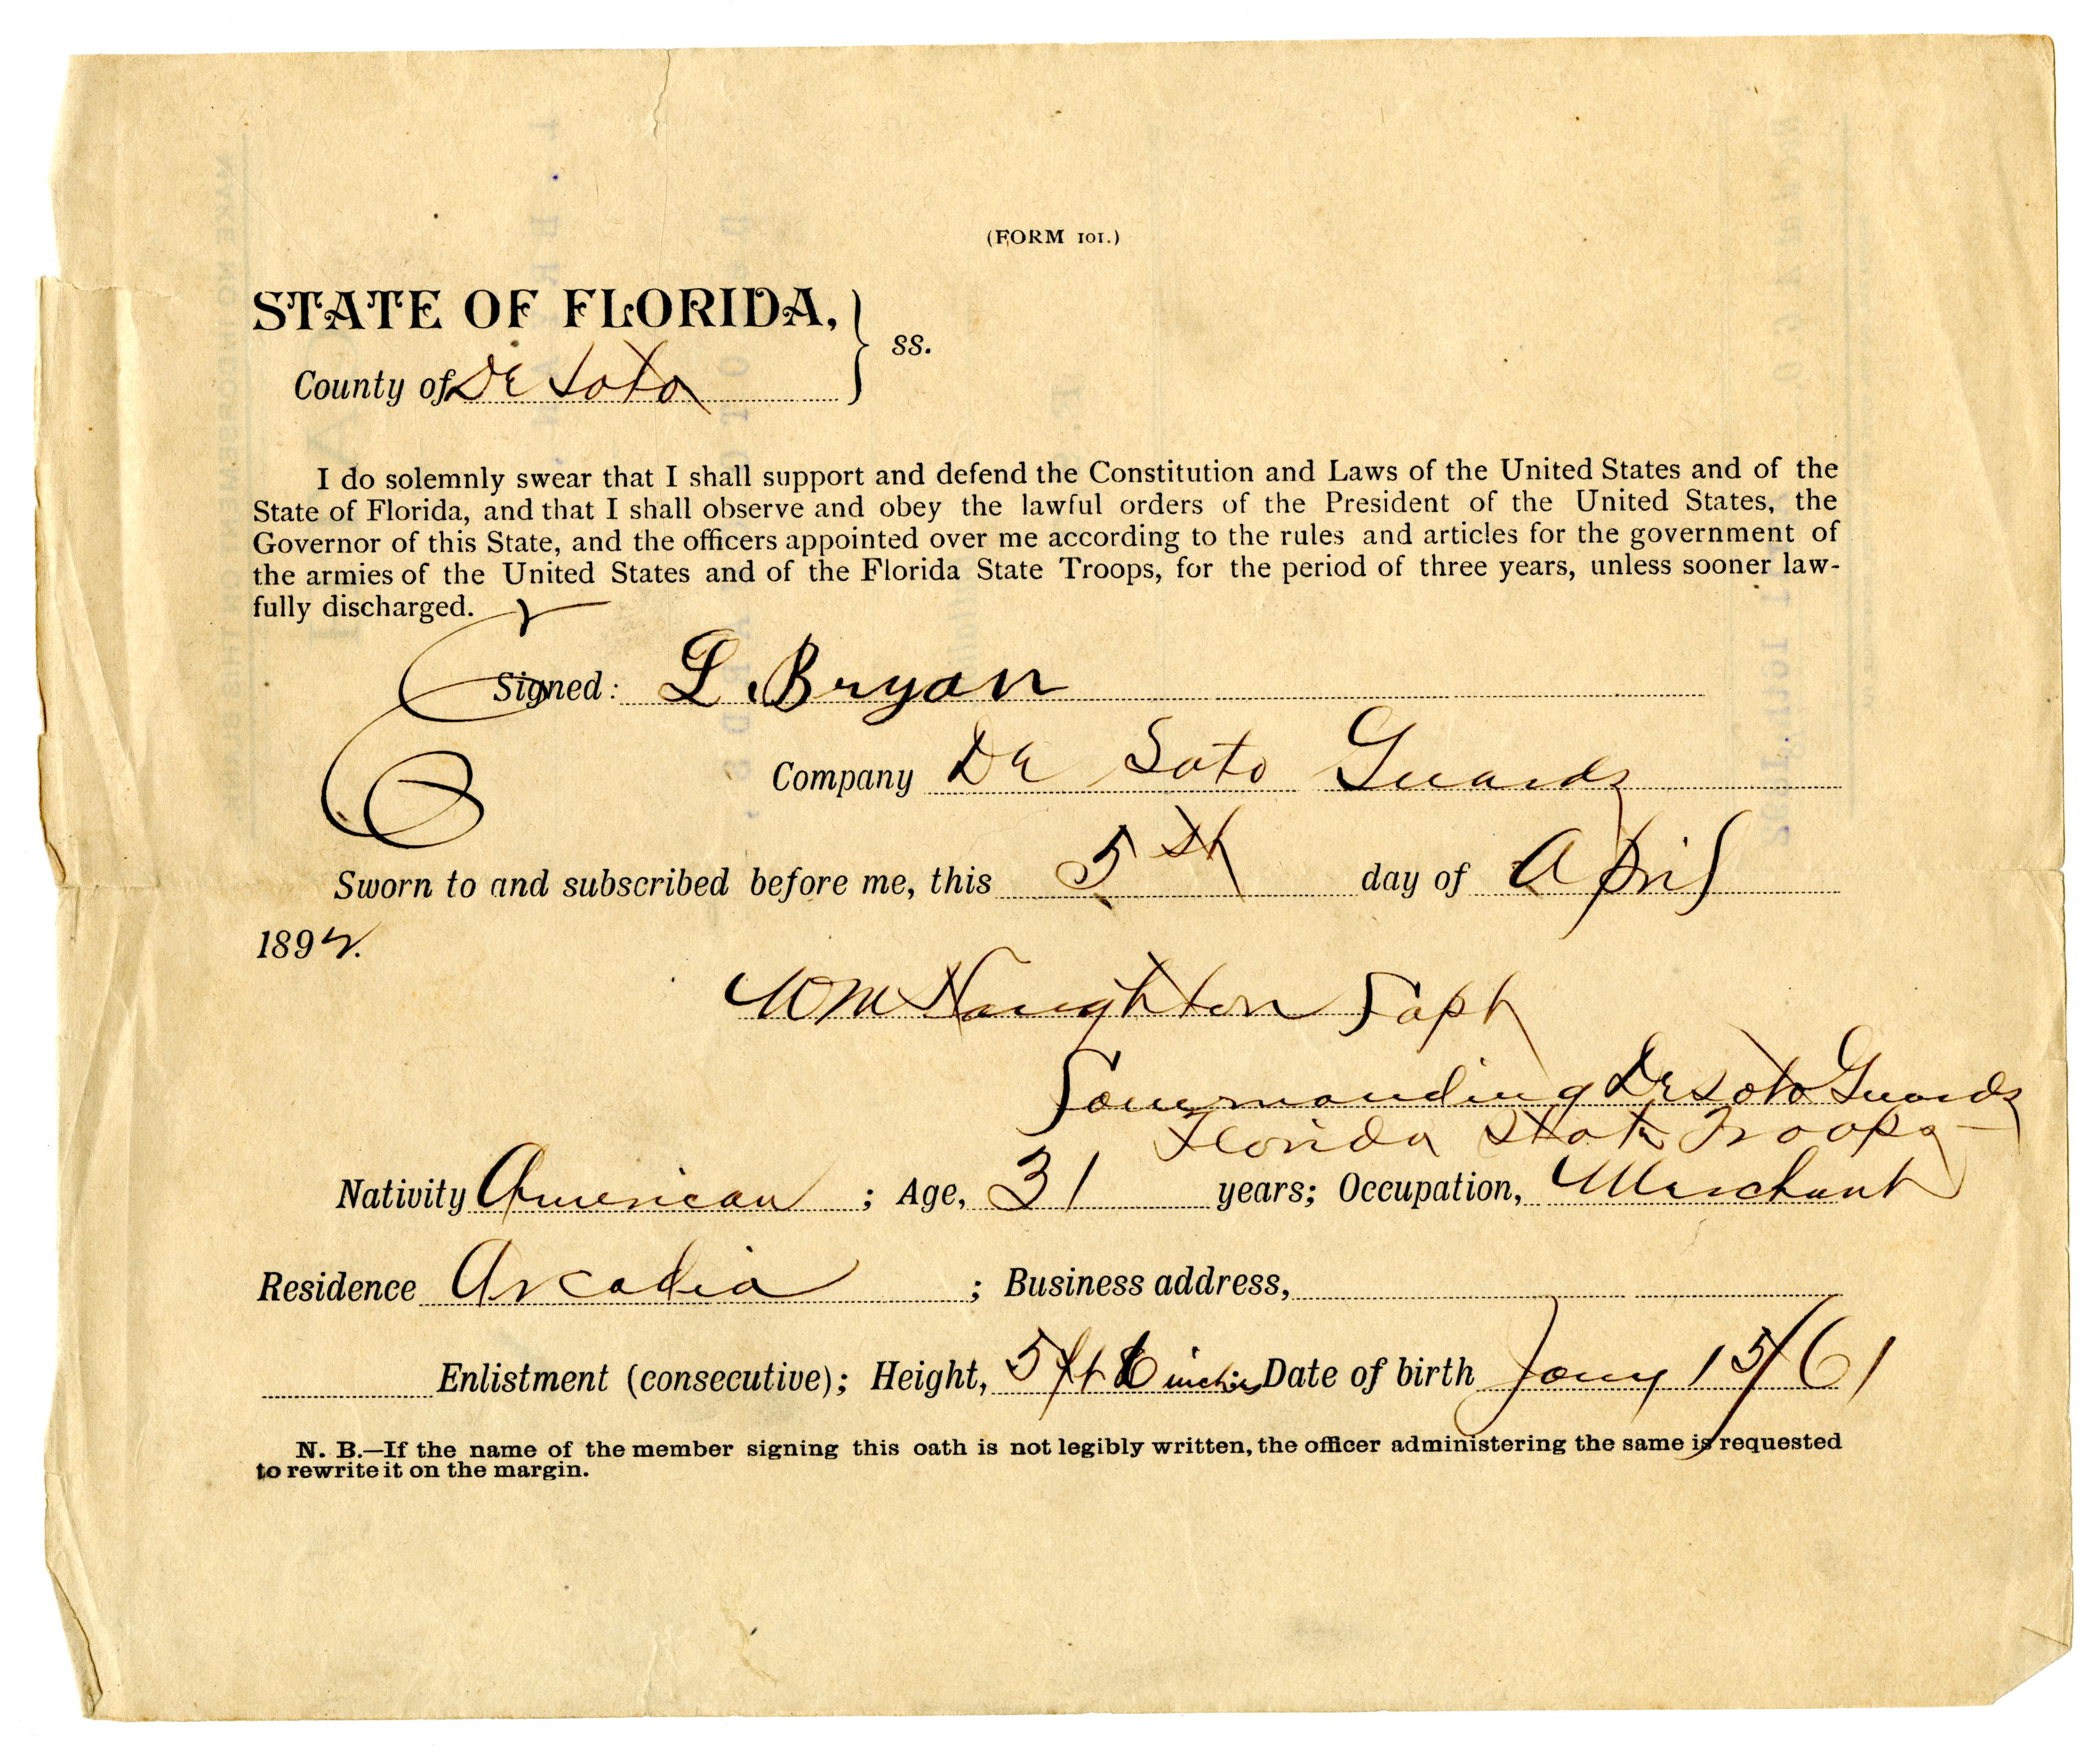 (FORM 101.)
STATE OF FLORIDA,
ss.
County of De Soto
I do solemnly swear that I shall support and defend the Constitution and Laws of the United States and of the
State of Florida, and that I shall observe and obey the lawful orders of the President of the United States, the
Governor of this State, and the officers appointed over me according to the rules and articles for the government of
the armies of the United States and of the Florida State Troops, for the period of three years, unless sooner law-
fully discharged.
Signed: L. Bryan
Company De Soto Guards
Sworn to and subscribed before me, this 5th day of April
1892.
Wm Naughton Capt
Commanding De Soto Guards
Florida State Troops
Nativity American ; Age, 31 years; Occupation, Merchant
Residence Arcadia ; Business address,
Enlistment (consecutive); Height, 5 ft inches Date of birth Jany 15/61
N. B.—If the name of the member signing this oath is not legibly written, the officer administering the same is requested
to rewrite it on the margin.